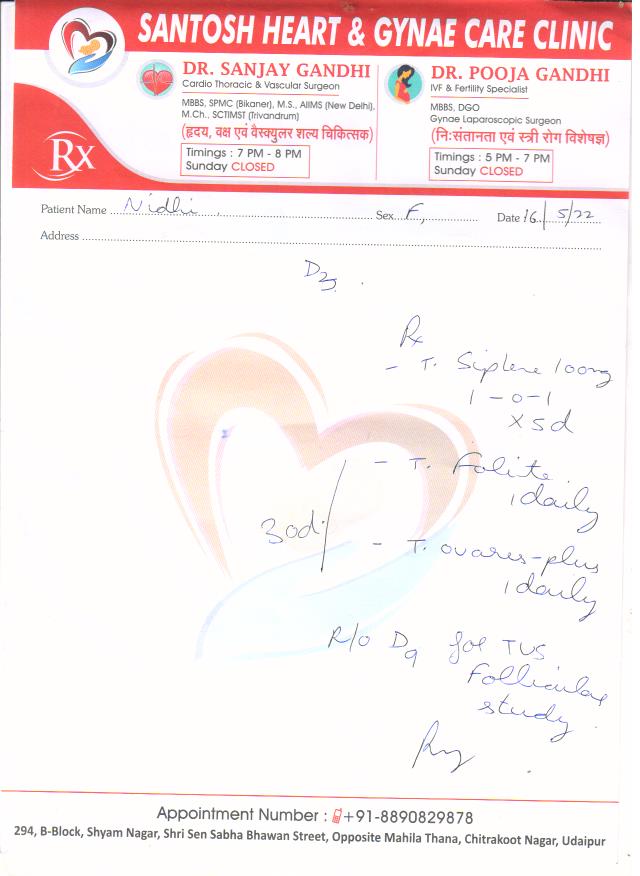 SANTOSH HEART & GYNAE CARE CLINIC
DR. SANJAY GANDHI
Cardio Thoracic & Vascular Surgeon
MBBS, SPMC (Bikaner), M.S., AIIMS (New Delhi),
M.Ch., SCTIMST (Trivandrum)
(हृदय, वक्ष एवं वैस्क्युलर शल्य चिकित्सक)
Timings : 7 PM - 8 PM
Sunday CLOSED
DR. POOJA GANDHI
IVF & Fertility Specialist
MBBS, DGO
Gynae Laparoscopic Surgeon
(निःसंतानता एवं स्त्री रोग विशेषज्ञ)
Timings : 5 PM - 7 PM
Sunday CLOSED
Rx
Patient Name Nidhi Sex F, Date 16/5/22
Address
D3
Rx
- T. Siplene 100mg
1-0-1
x 5d
- T. Folite
1 daily
30d
- T. ovares-plus
1 daily
R/o D9 for TVS
Follicular
study
Appointment Number : +91-8890829878
294, B-Block, Shyam Nagar, Shri Sen Sabha Bhawan Street, Opposite Mahila Thana, Chitrakoot Nagar, Udaipur